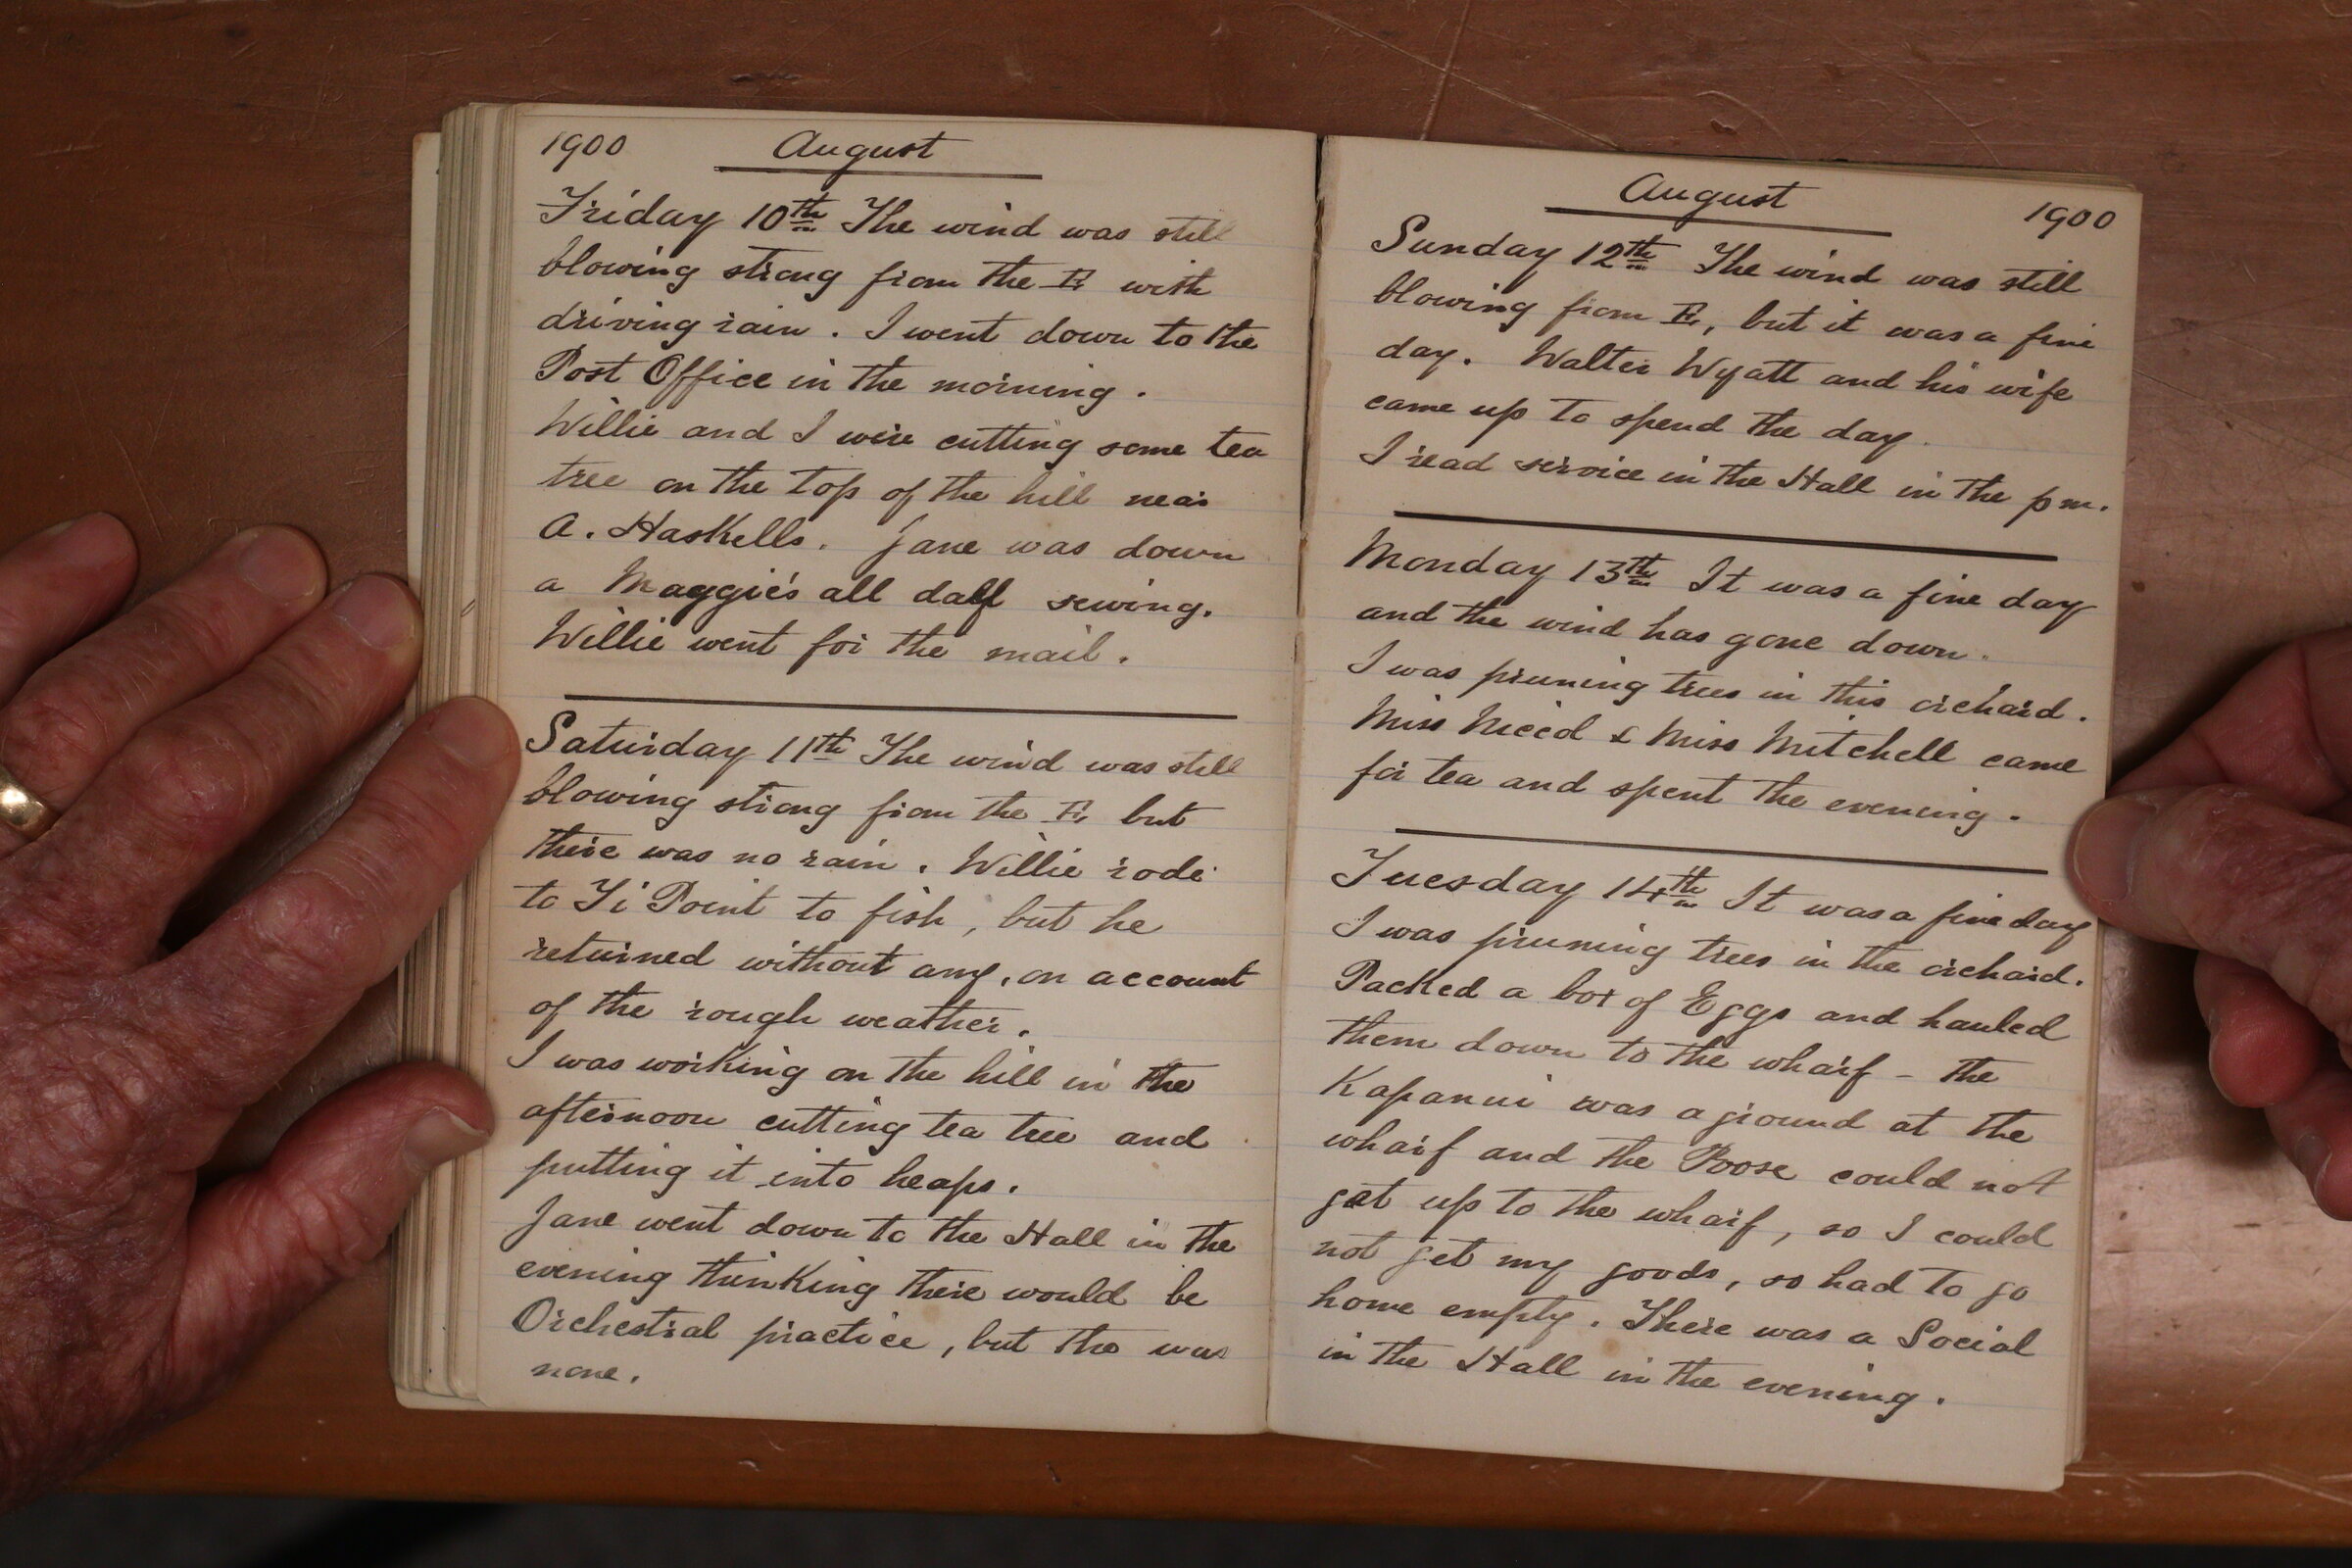 1900 August
Friday 10th The wind was still
blowing strong from the E with
driving rain. I went down to the
Post Office in the morning.
Willie and I were cutting some tea
tree on the top of the hill near
A. Haskells. Jane was down
a Maggie's all day sewing.
Willie went for the mail.
Saturday 11th The wind was still
blowing strong from the E, but
there was no rain. Willie rode
to Ti Point to fish, but he
returned without any, on account
of the rough weather.
I was working on the hill in the
afternoon cutting tea tree and
putting it into heaps.
Jane went down to the Hall in the
evening thinking there would be
Orchestral practice, but the was
none.
August 1900
Sunday 12th The wind was still
blowing from E, but it was a fine
day. Walter Wyatt and his wife
came up to spend the day.
I read service in the Hall in the pm.
Monday 13th It was a fine day
and the wind has gone down.
I was pruning trees in this orchard.
Miss & Miss Mitchell came
for tea and spent the evening.
Tuesday 14th It was a fine day
I was pruning trees in the orchard.
Packed a box of Eggs and hauled
them down to the wharf - the
Kapanui was aground at the
wharf and the Rose could not
get up to the wharf, so I could
not get my goods, so had to go
home empty. There was a Social
in the Hall in the evening.